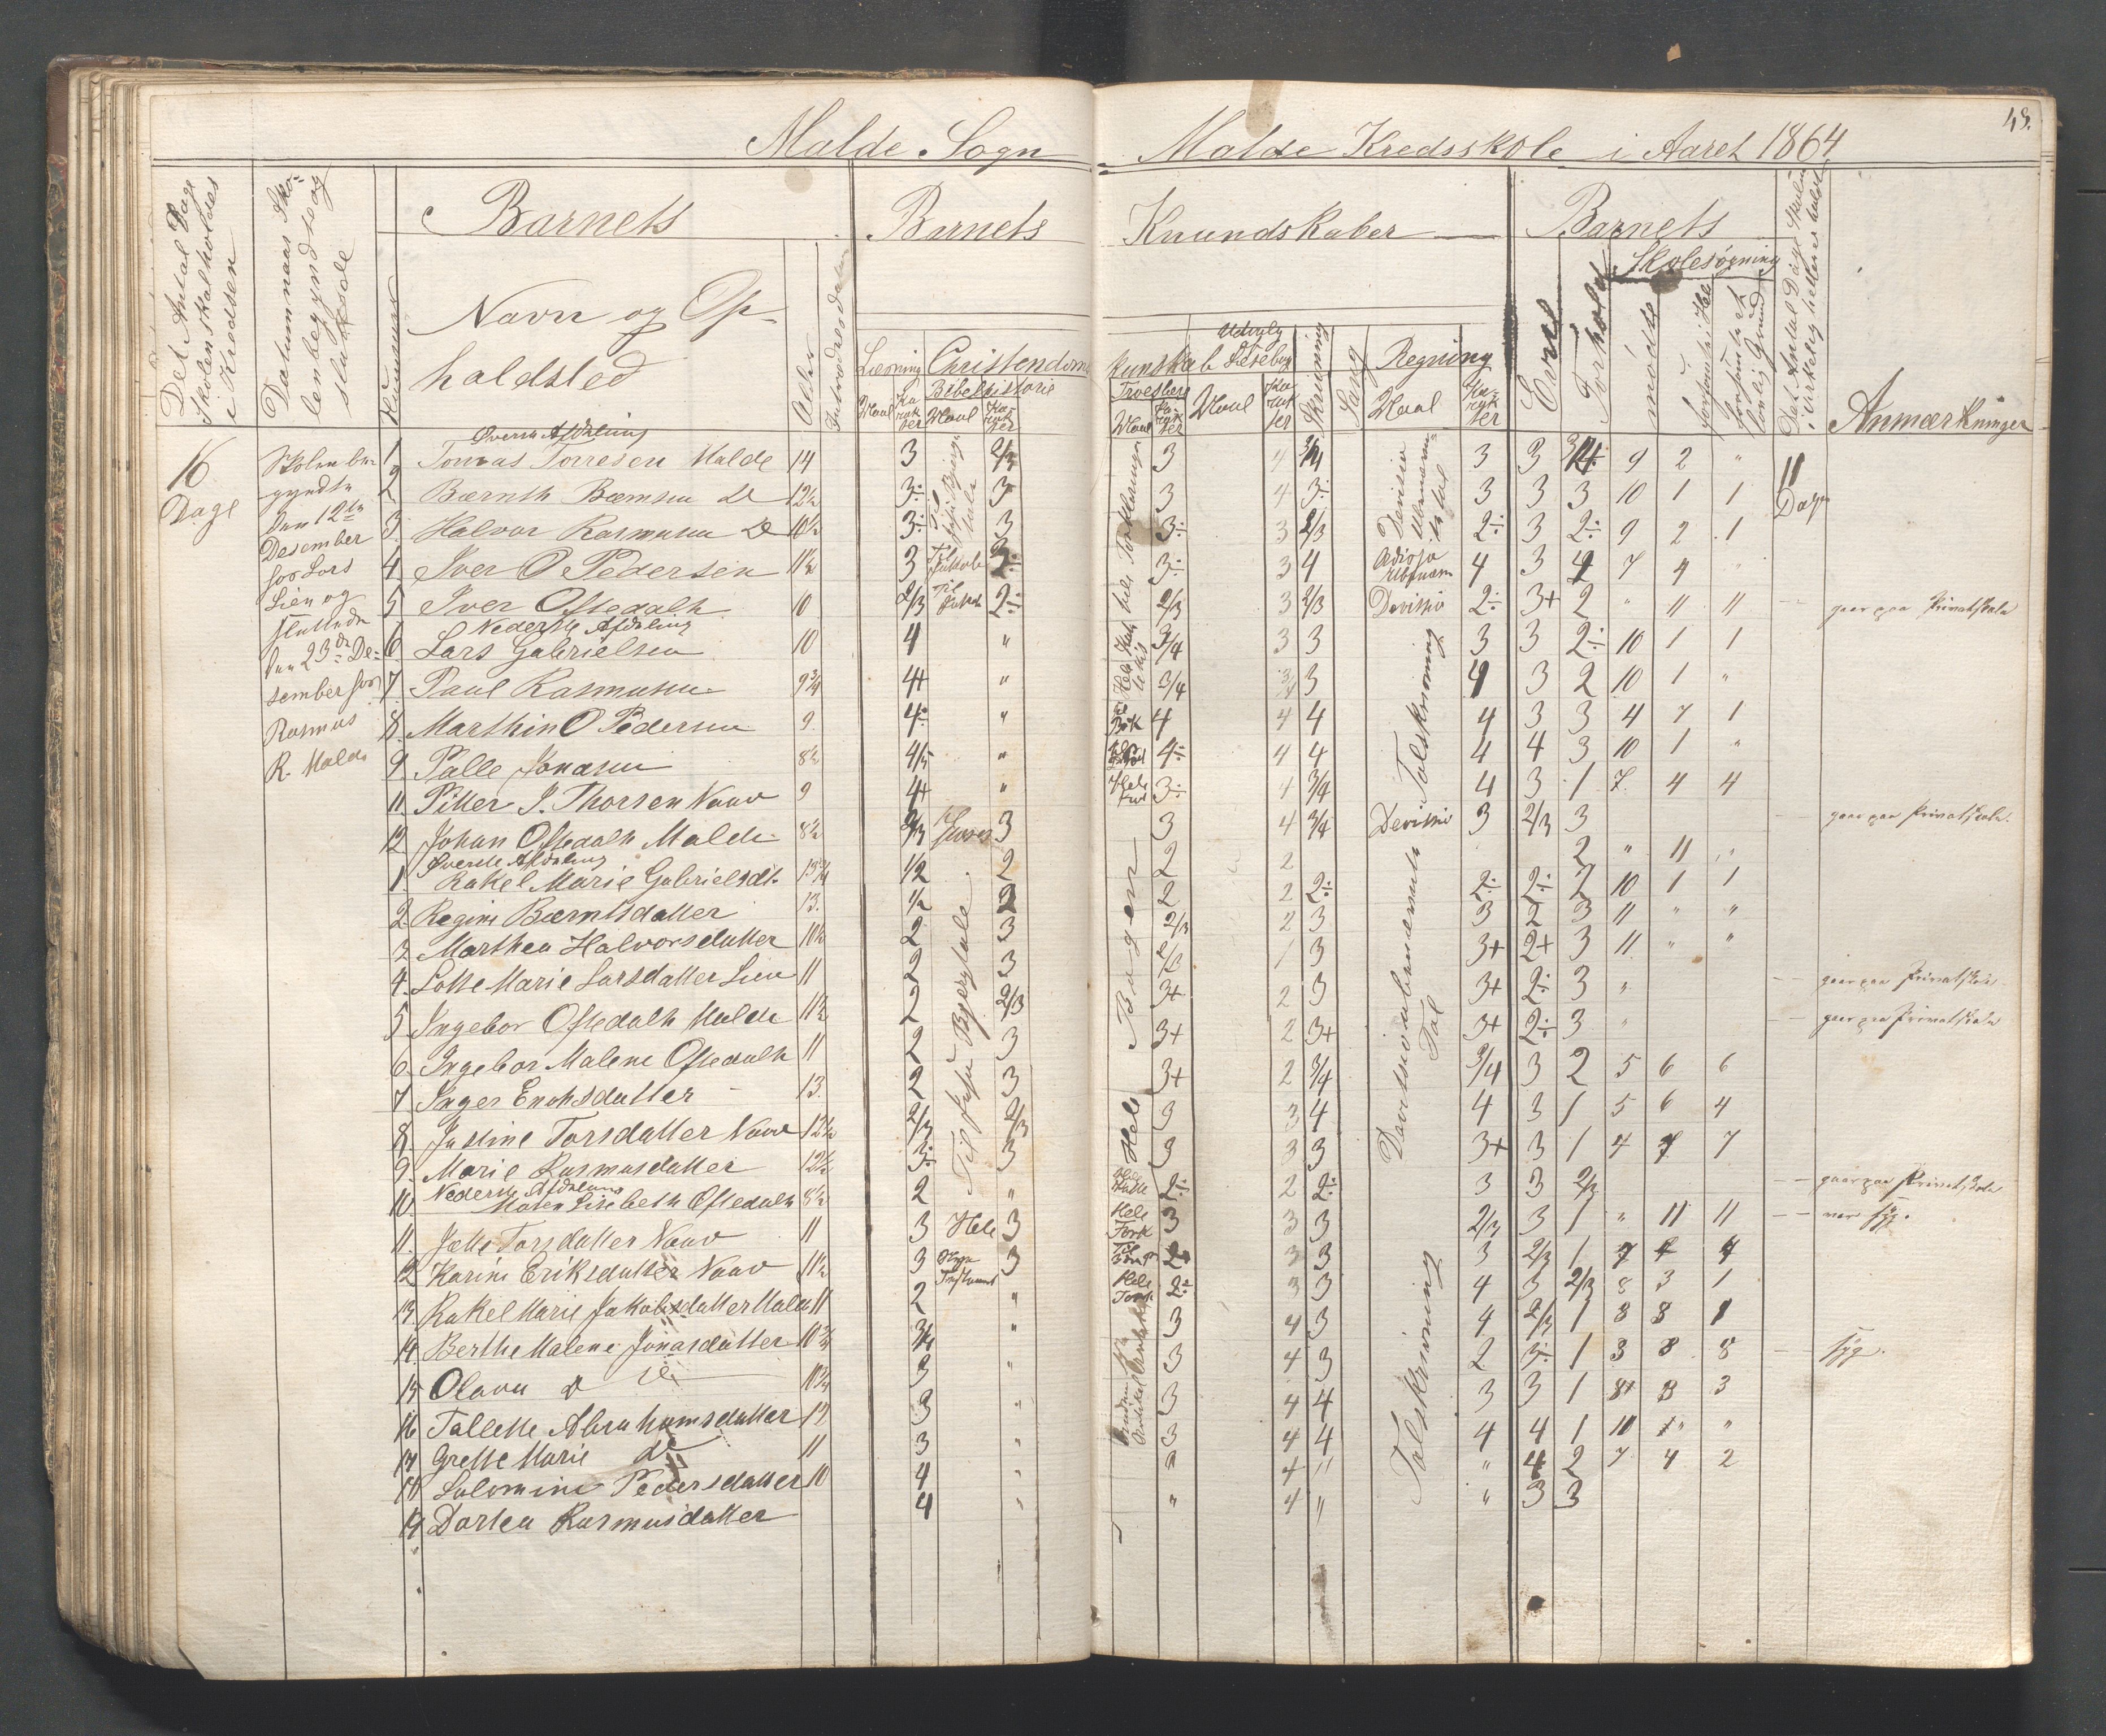 48.
Malde Sogn Malde Kredsskole i Aaret 1864
Det Antal Dage Skolen skal holdes i Kredsen
Datum naar Skolen begyndte og sluttede
Nummer
Barnets
Navn og Opholdsted
Alder
Indtrædelsesdatum
Barnets Kundskaber
Læsning
Maal
Karakter
Christendoms kunskab
Bibelhistorie
Maal
Karakter
Troeslære
Maal
Karakter
Udvalg Læsebog
Maal
Karakter
Skrivning
Sang
Regning
Maal
Karakter
Barnets
Evne
Forhold
Skolesøgning
mødte
forsømte i Hele
forsømte af lovlig Grund
Det Antal Dage Skolen i virkelighetten er holdt
Anmærkninger
16 Dage
Skolen be-
gyndte
den 12te
Desember
for Lars
Lien og
sluttede
den 23de De-
sember for
Rasmus
R. Malde
11 Dage
Øverste Afdeling
1 Tomas Torresen Malde 14 3 2/3 3 4 3/4 3 3 9 2 "
2 Bærnth Bærnsen do 12½ 3÷ 3 3 4 3÷ 3 3 3 10 1 1
3 Halvor Rasmusen do 10½ 3÷ 3 3÷ 3 2/3 2÷ 3 2÷ 9 2 1
4 Iver O Pedersen 11½ 3 3÷ 3 4 4 3 4 7 4 "
5 Iver Oftedalh 10 2/3 2÷ 2/3 3 2/3 Devisio 2÷ 3+ 2 " 11 11 -- gaar paa Privatskole
Nederste Afdeling
6 Lars Gabrielsen 10 4 " 3/4 3 3 3 3 2÷ 10 1 1
7 Paul Rasmusen 9¾ 4+ " 3/4 3/4 3 4 3 2 10 1 "
8 Marthin O Pedersen 9 4÷ " 4 4 4 4 3 3 4 7 1
9 Palle Jonasen 8½ 4/5 " 4÷ 4 4 4 4 3 10 1 "
11 Pitter J. Thorsen Naav 9 4+ " 3÷ 4 3/4 4 3 1 7 4 4
12 Johan Oftedalh Malde 8½ 2/3 3 3 4 3/4 Devisio 3 2/3 3 -- gaar paa Privatskole.
Øverste Afdeling
1 Rakel Marie Gabrielsdt. 13¾ 1/2 2 2 2 2 " 11 "
2 Regine Bærntsdatter 13. 1/2 2 2 2 2÷ 2÷ 2÷ 2 10 1 1
3 Marthea Halvorsdatter 10½ 2 3 2/3 2 3 3 2 3 11 " "
4 Lotte Marie Larsdatter Lien 11 2 3 2/3 1 3 3+ 2+ 3 11 " "
5 Ingebor Oftedalh Malde 11½ 2 2/3 3+ 2 3 3+ 2÷ 3 " -- gaar paa Privatskole
6 Ingebor Malene Oftedalh 11 2 3 3+ 2 3+ 3+ 2÷ 3 " -- gaar paa Privatskole
7 Inger Enoksdatter 13. 2 3 3+ 2 3/4 3/4 3 2 5 6 6
8 Justine Torsdatter Naav 12½ 2/3 2/3 3 3 4 4 3 1 5 6 4
9 Marie Rasmusdatter 12½ 3÷ 3 3 3 3 3+ 3 1 4 7 7
Nederste Afdeling
10 Maren Lisebeth Oftedalh 8½ 2 " 2÷ 2 2÷ 3 3 2/3 -- gaar paa Privatskole
11 Jette Torsdatter Naav 11 3 Hele 3 3 3 3 2/3 3 1 " 11 11 -- var syg.
12 Karine Eriksdatter Naav 11½ 3 3 2+ 3 3 3 2/3 1 7 4 4
13 Rakel Marie Jakobsdatter Malde 11 2 " 2÷ 3 3 4 3 2/3 8 3 1
14 Berthe Malene Jonasdatter 10¾ 3/4 " 3 4 3 4 2/3 1 8 8 1
15 Olava do do 10¾ 3 " 3 4 3 2 3÷ 1 3 8 8 -- syg.
16 Tallette Abrahamsdatter 12 3 " 3 4 4 3 3 1 8+ 3 3
17 Grette Marie do 11 3 " 3 4 4 4 4 1 10 1 "
18 Salomine Pedersdatter 10 4 " " 4 " " 4 2 7 4 2
19 Dortea Rasmusdatter 4 " " 4 " " 3 3
Til Jesu Bjergtale
Bogen
Talskrivning
Talskrivning